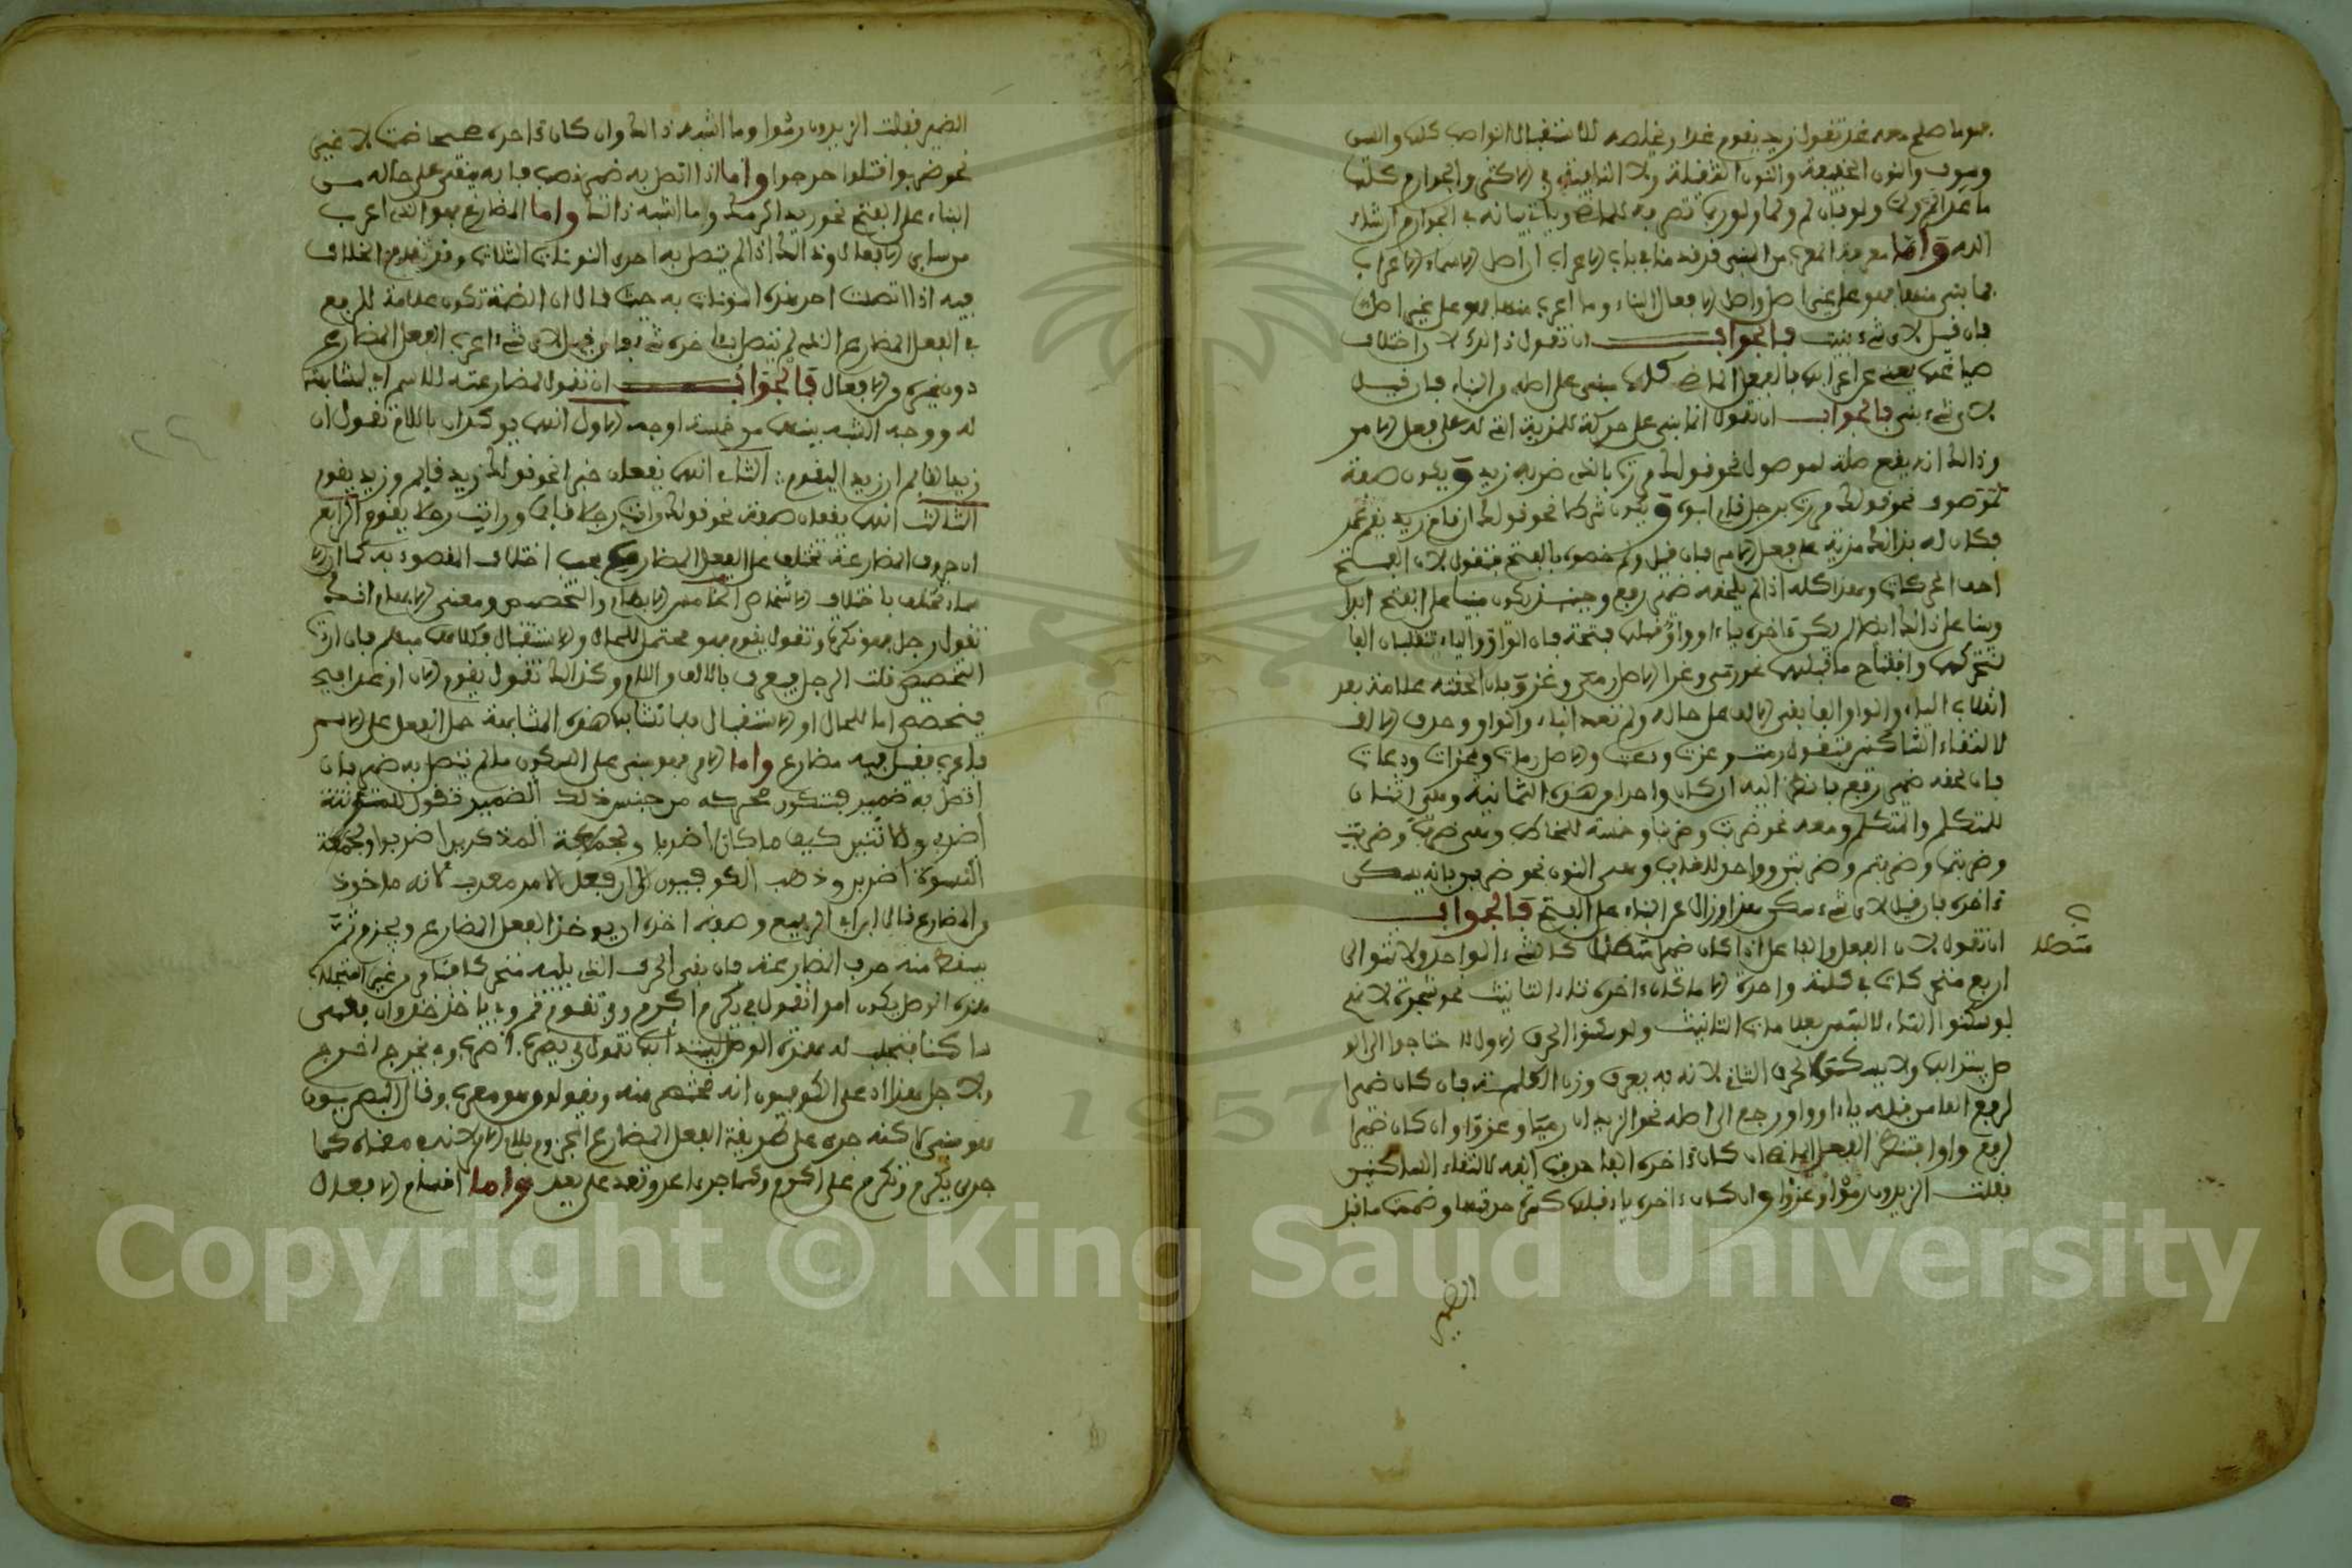 فهو ما صلح معه غد تقول زيد يقوم غدا ويخلصه للاستقبال النواصب كلها والسين
وسوف والنون الخفيفة والنون الثقيلة ولا النافية في الاكثر والجوازم كلها
ما عدا لم ولما ولو فان لم ولما ولو تصرفه للماضي وياتي بيانه في الجوازم ان شاء
الله واما معرفة المعرب من المبني فقد قدمنا في باب الاعراب ان اصل الاسماء الاعراب
فما بني منها فهو على غير اصل واصل الافعال البناء وما اعرب منها فهو على غير اصله
فان قيل لاي شيء بنيت فالجواب ان تقول ذالك لان اختلاف
صيا غها يغني عن اعرابها فالفعل الماضي كله بني على اصله من البناء فان قيل
لاي شيء بني فالجواب ان تقول انما بني على حركة للمزية التي له على فعل الامر
وذالك انه يقع صلة لموصول نحو قولك مررت بالذي ضربه زيد ويكون صفة
لموصوف نحو قولك مررت برجل قام ابوه ويكون شرطا نحو قولك ان قام زيد يقم عمر
فكان له بذالك مزية على فعل الامر فان قيل ولم خصوه بالفتح فتقول لان الفتح
اخف الحركات وهذا كله اذا لم يلحقه ضمير رفع وحينئذ يكون مبنيا على الفتح ابدا
وبناء على ذالك ايضا لم يكن ءاخره ياء او واو قبلها فتحة فان الواو والياء تنقلبان الفا
لتحركها وانفتاح ما قبلها نحو رمى وغزا الاصل رمي وغزو فان لحقته علامة بعد
انقلاب الياء والواو الفا بقي الالف على حاله ولم تعد الياء والواو وحذف الالف
لالتقاء الساكنين فتقول رمت وغزت ودعت والاصل رمات وغزات ودعات
فان لحقه ضمير رفع فانظر اليه ان كان واحدا من هذه الثمانية وهي اثنان
للمتكلم والمتكلم ومعه نحو ضربت وضربنا وخمسة للمخاطب وهي ضربت وضربت
وضربتما وضربتم وضربتن وواحد للغايب وهي النون نحو ضربن فانه يسكن
ءاخره فان قيل لاي شيء سكن هذا وزال عن البناء على الفتح فالجواب
ان تقول لان الفعل والفاعل اذا كان ضميرا متصلا كالشيء الواحد ولا تتوالى
اربع متحركات في كلمة واحدة الا ما كان ءاخره تاء التانيث نحو شجرة لانهم
لو سكنوا التاء لالتبس بعلامة التانيث ولو سكنوا الحرف الاول لاحتاجوا الى الو
صل يبتدا بها ولا يسكن الحرف الثاني لانه به يعرف وزن الكلمة فان كان ضميرا
لرفع الفا من قبله ياء او واو رجع الى اصله نحو الزيدان رميا وغزوا وان كان ضميرا
لرفع واوا فتنظر الفعل الماضي ان كان ءاخره الفا حذفت الفه لالتقاء الساكنين
فقلت الزيدون رموا وغزوا وان كان ءاخره ياء قبلها كسرة حذفتها وضممت ما قبل
الضمير
متصلا
الضمير فقلت الزيدون رضوا وما اشبه ذالك وان كان ءاخره صحيحا ضمت لا غير
نحو ضربوا قتلوا خرجوا واما اذا اتصل به ضمير نصب فانه يبقى على حاله من
البناء على الفتح نحو زيد اكرمك وما اشبه ذالك واما المضارع فهو الذي اعرب
من ساير الافعال وذالك اذا لم يتصل به احدى النونات الثلاث وقد تقدم الخلاف
فيه اذا اتصلت احد هذه النونات به حيث قال ان الضمة تكون علامة للرفع
في الفعل المضارع الذي لم يتصل بءاخره شيء فان قيل لاي شيء اعرب الفعل المضارع
دون غيره من الافعال فالجواب ان تقول لمضارعته للاسم اي لمشابهته
له ووجه الشبه بينهما من خمسة اوجه الاول انهما يوكدان باللام تقول ان
زيدا لقايم ان زيدا ليقوم الثاني انهما يقعان خبرا نحو قولك زيد قايم وزيد يقوم
الثالث انهما يقعان صفة نحو قولك رايت رجلا قايما ورايت رجلا يقوم الرابع
ان حروف المضارعة تختلف على الفعل المضارع بحسب اختلاف المقصود به كما ان الا
سماء تختلف باختلاف الاشخاص الخامس الابهام والتخصيص ومعنى الابهام انك
تقول رجل فهو نكرة وتقول يقوم فهو محتمل للحال والاستقبال وكلاهما مبهم فان اردت
التخصيص قلت الرجل فيعرف بالالف واللام وكذالك تقول يقوم الان او غدا فيه
فيتخصص اما للحال او الاستقبال فلما تشابها هذه المشابهة حمل الفعل على الاسم
فاعرب فقيل فيه مضارع واما الامر فهو مبني على السكون ما لم يتصل به ضمير فان
اتصل به ضمير فتكون حركته من جنس ذلك الضمير فتقول للمؤنثة
اضربي وللاثنين كيف ما كان اضربا ولجماعة المذكرين اضربوا ولجماعة
النسوة اضربن وذهب الكوفيون الى ان فعل الامر معرب لانه ماخوذ
من المضارع قال ابن ابي الربيع وصفة اخذه ان يوخذ الفعل المضارع ويجزم ثم
يسقط منه حرف المضارعة فان بقي الحرف الذي يليه متحركا فتامر من غير اجتلاب
همزة الوصل يكون امرا تقول في يكرم اكرم وفي تقوم قم وفي ياخذ خذ وان بقي
ساكنا فتجلب له همزة الوصل ليبتدا بها تقول في يضرب اضرب وفي يخرج اخرج
ولاجل هذا ادعى الكوفيون انه مختصر منه ويقولون هو معرب وقال البصريون
هو مبني لاكنه جرى على طريقة الفعل المضارع المجزوم بلام الامر لانه بمعناه كما
جرى يكرم وتكرم على اكرم وكما جرى اعد وتعد على يعد واما اقسام الافعال